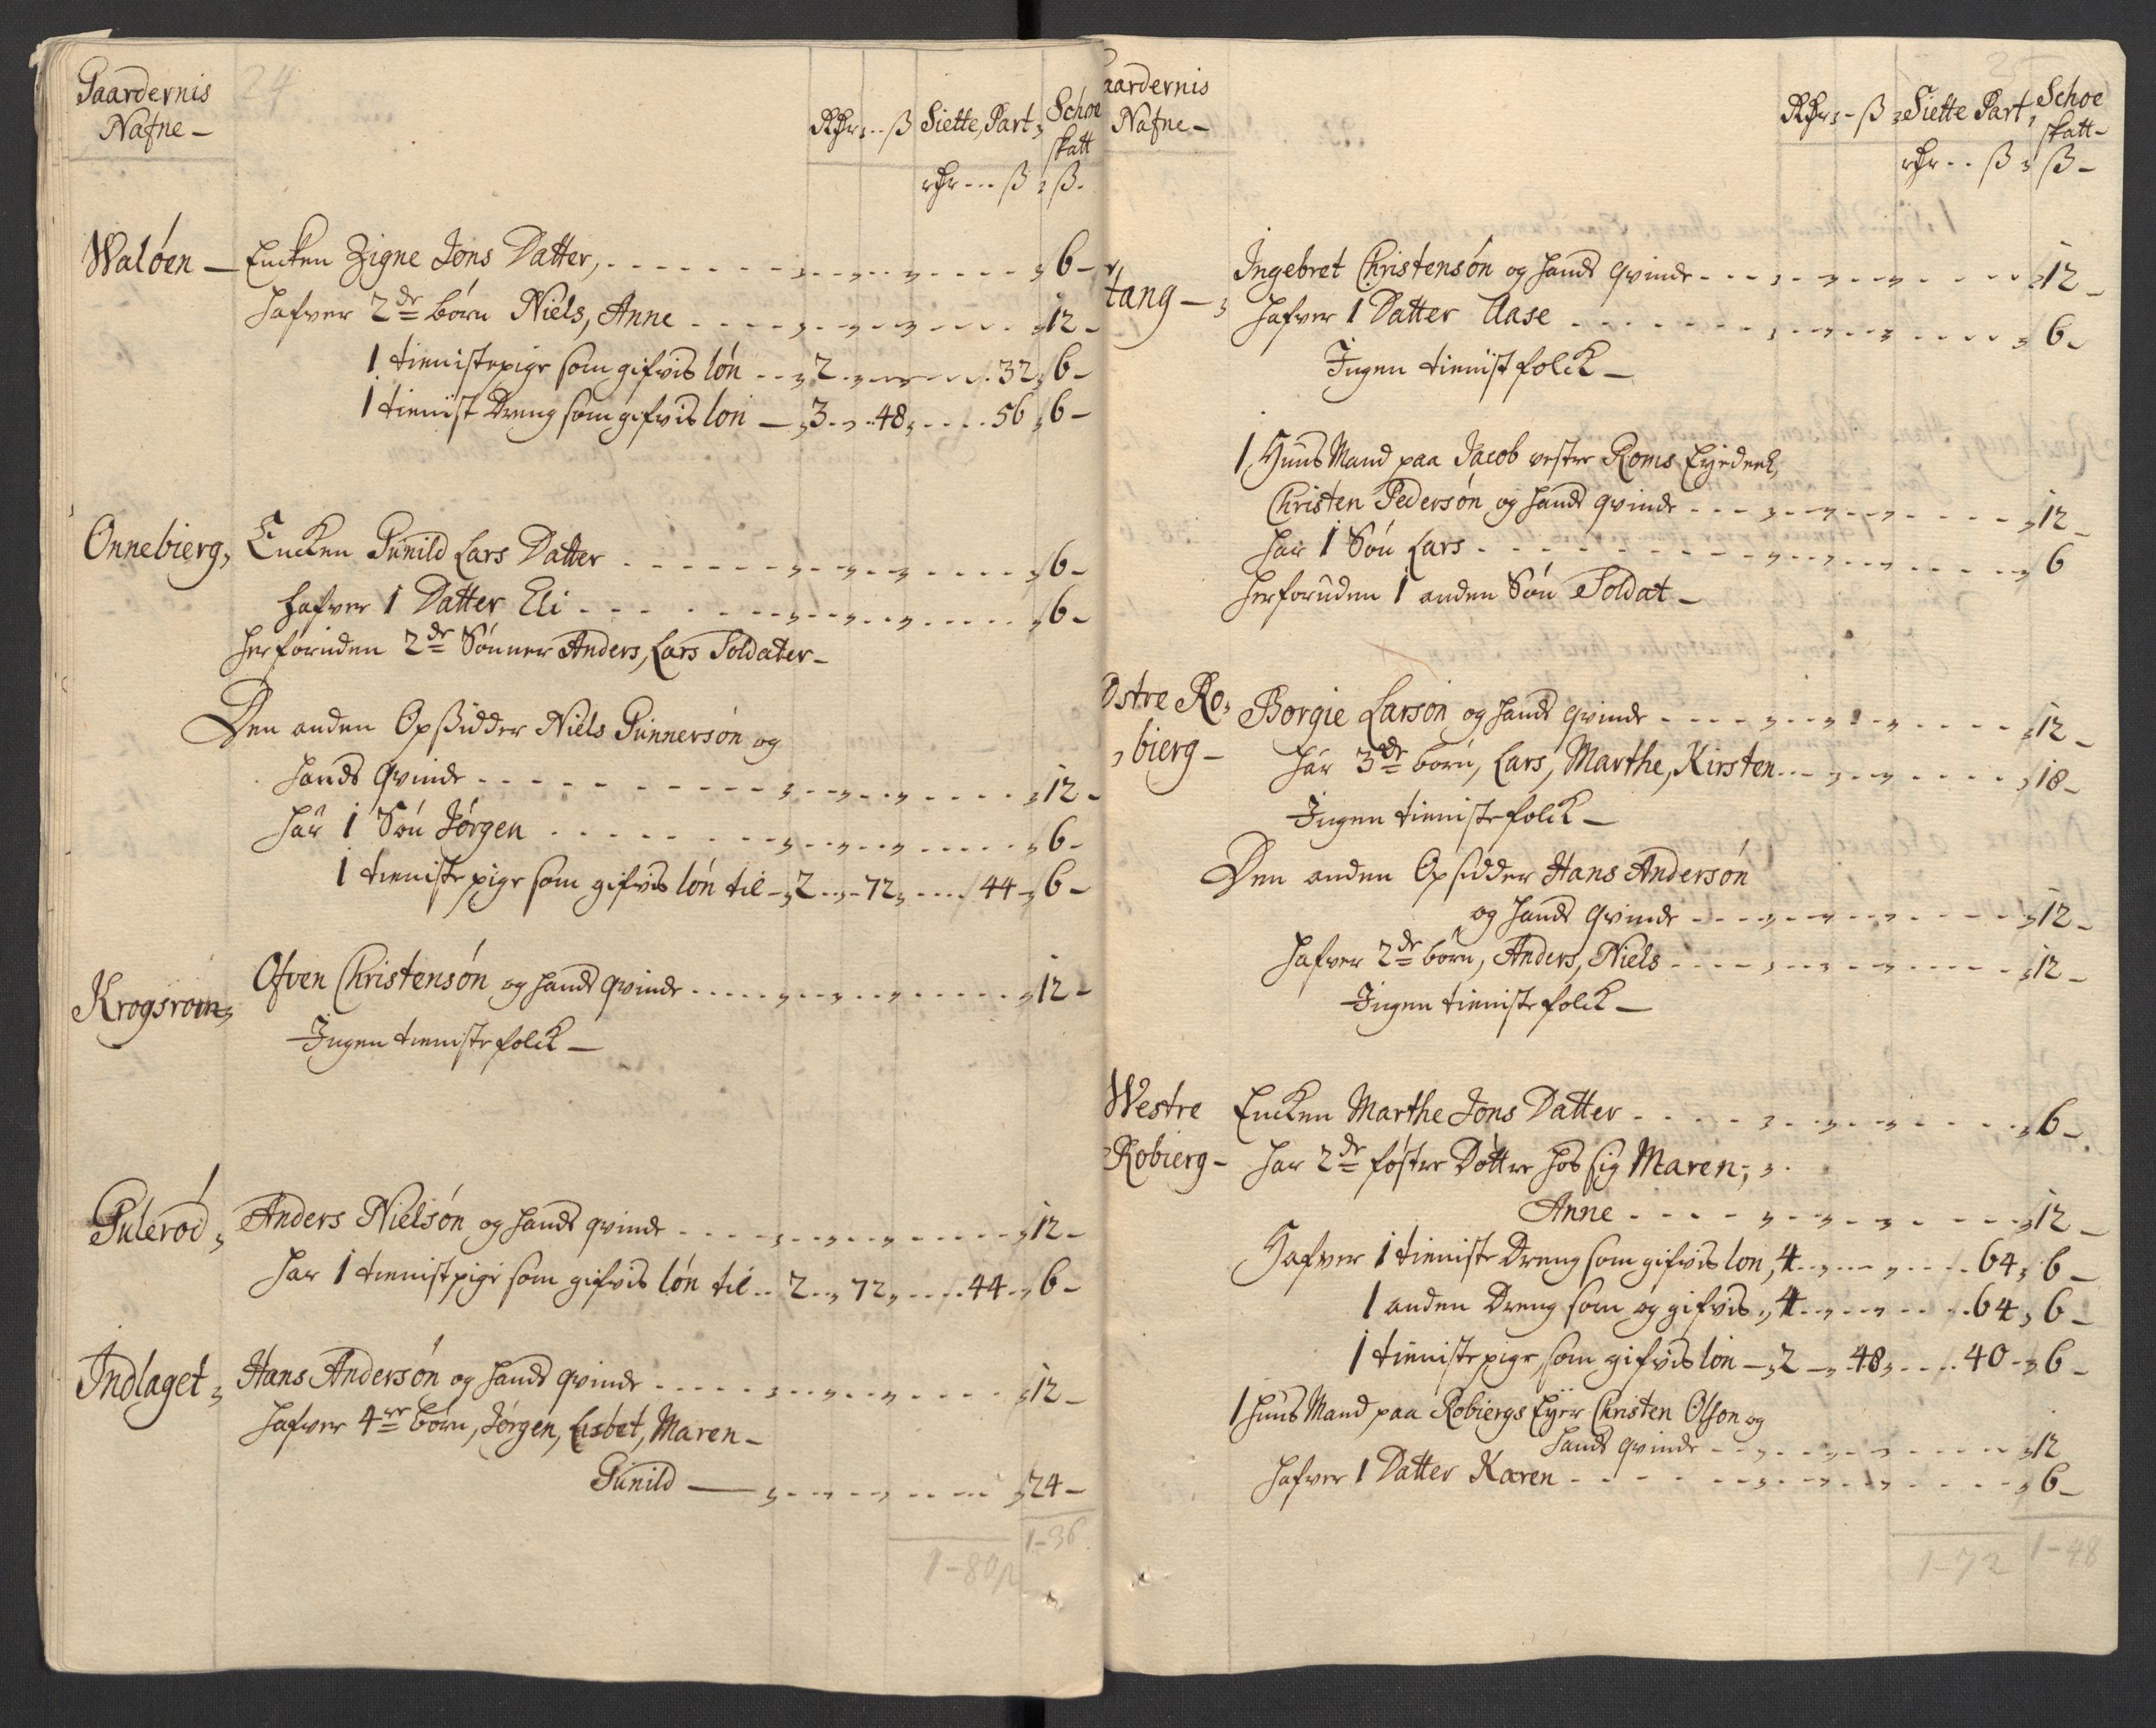 24
Gaardernis
Nafne -
Rdr ß Siette Part, Schoe
skatt
rdr --- ß ß.
Waløen - Encken Zigne Jons Datter, 6 -
Hafver 2de børn Niels, Anne 12 -
1 tienistepige som gifvis løn 2 32 6 -
1 tienist Dreng som gifvis løn - 3 48 56 6 -
Onnebierg, Encken Gunild Lars Datter 6 -
Hafver 1 Datter Eli 6 -
Herforuden 2de Sønner Anders, Lars Soldater -
Den anden Opsidder Niels Gunnersøn og
Hands Qvinde 12 -
Har 1 Søn Jørgen 6 -
1 tieniste pige som gifvis løn til - 2 72 44 6 -
Krogsrom, Ofven Christensøn og Hands qvinde 12 -
Ingen tieniste folck -
Gulerød, Anders Nielsøn og Hands qvinde 12 -
Har 1 tienistpige som gifvis løn til 2 72 44 6 -
Indlaget, Hans Andersøn og Hands qvinde 12 -
Hafver 4re børn, Jørgen, Lisbet, Maren -
Gunild 24 -
1-36
1-80
aardernis
Nafne -
Rdr - ß Siette Part, Schoe
skatt -
rdr - - ß ß -
tang - Ingebret Christensøn og Hands qvinde 12 -
Hafver 1 Datter Aase 6 -
Ingen tienist folck -
1 Huus Mand paa Jacob vestre Roms Eyedeel,
Christen Pedersøn og Hands qvinde 12 -
Har 1 Søn Lars 6
Herforuden 1 anden Søn Soldat -
Østre Ro, Borgie Larsøn og Hands qvinde 12 -
bierg - Har 3de børn, Lars, Marthe, Kirsten 18 -
Ingen tieniste folck -
Den anden Opsidder Hans Andersøn
og Hands Qvinde 12 -
Hafver 2de børn, Anders, Niels 12 -
Ingen tieniste folck -
Westre Encken Marthe Jons Datter 6 -
Robierg - Har 2de føster Døttre hos sig Maren,
Anne 12 -
Hafver 1 tieniste Dreng som gifvis løn, 4 64 6 -
1 anden Dreng som og gifvis, 4 64 6 -
1 tienistepige, som gifvis løn - 2 48 40 6 -
1 Huus Mand paa Robiergs Eyer Christen Olson og
Hands qvinde 12
Hafver 1 Datter Karen 6 -
1-72 1-48